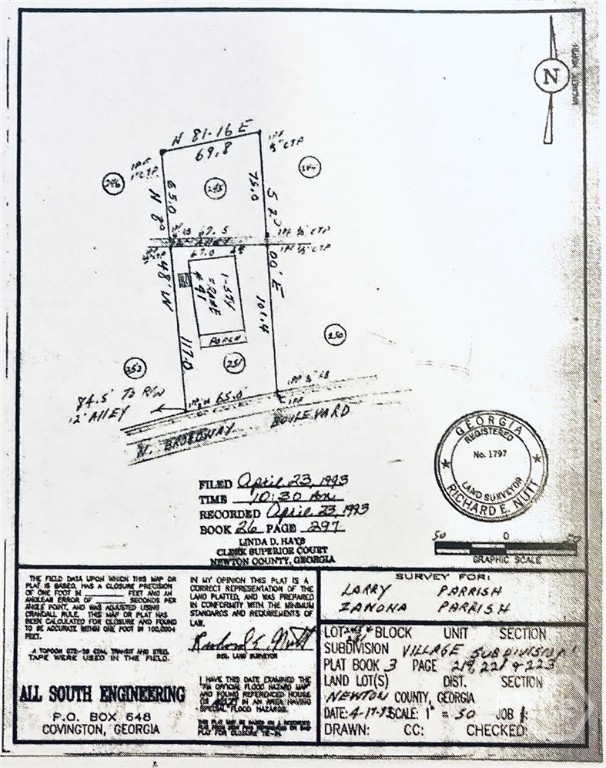 N
MAGNETIC NORTH
N 81-16 E
69.8
IPF
½" CTP
IPF
1" CTP
246
245
244
N 8°
65.0
75.0
S 2°
67.5
ALLEY
IPF ½" CTP
67.0
48' W
00' E
1-STY
FRAME
# 91
PORCH
101.4
117.0
250
252
251
84.5' TO R/W
12' ALLEY
65.0'
IPF
N. BROADWAY BOULEVARD
GEORGIA
REGISTERED
No. 1797
LAND SURVEYOR
RICHARD E. NUTT
FILED April 23, 1993
TIME 10:30 Am
RECORDED April 23, 1993
BOOK 26 PAGE 297
LINDA D. HAYS
CLERK SUPERIOR COURT
NEWTON COUNTY, GEORGIA
50 0 50
GRAPHIC SCALE
THE FIELD DATA UPON WHICH THIS MAP OR
PLAT IS BASED, HAS A CLOSURE PRECISION
OF ONE FOOT IN FEET AND AN
ANGULAR ERROR OF SECONDS PER
ANGLE POINT, AND WAS ADJUSTED USING
CRANDALL RULE. THIS MAP OR PLAT HAS
BEEN CALCULATED FOR CLOSURE AND FOUND
TO BE ACCURATE WITHIN ONE FOOT IN 100,000+
FEET.
A TOPCON TRANSIT AND STEEL
TAPE WERE USED IN THE FIELD.
ALL SOUTH ENGINEERING
P.O. BOX 648
COVINGTON, GEORGIA
IN MY OPINION THIS PLAT IS A
CORRECT REPRESENTATION OF THE
LAND PLATTED, AND WAS PREPARED
IN CONFORMITY WITH THE MINIMUM
STANDARDS AND REQUIREMENTS OF
LAW.
Richard E. Nutt
REG. LAND SURVEYOR
I HAVE THIS DATE EXAMINED THE
"FIA OFFICIAL FLOOD HAZARD MAP"
AND FOUND REFERENCED HOUSE
IN AN AREA HAVING
SPECIAL FLOOD HAZARDS.
SURVEY FOR:
LARRY PARRISH
ZANONA PARRISH
LOT BLOCK UNIT SECTION
SUBDIVISION VILLAGE SUBDIVISION
PLAT BOOK 3 PAGE 219, 221 & 223
LAND LOT(S) DIST. SECTION
NEWTON COUNTY, GEORGIA
DATE: 4-17-93 SCALE: 1" = 50 JOB #:
DRAWN: CC: CHECKED: